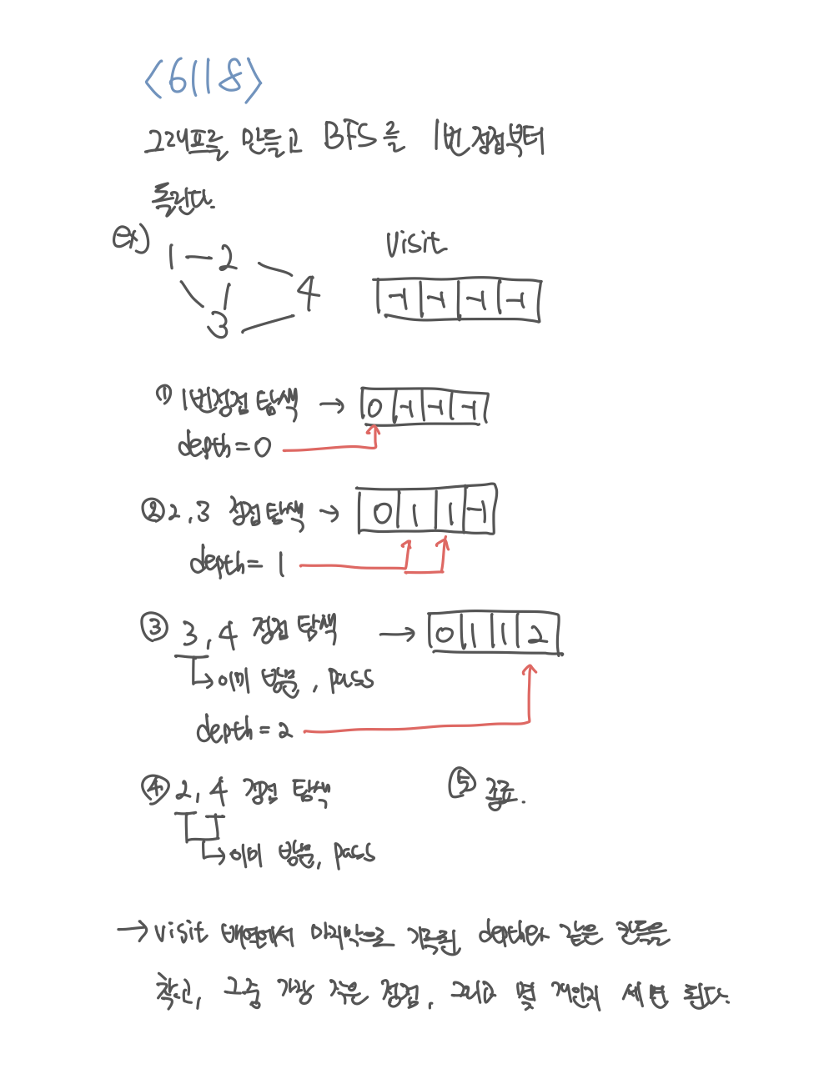 <6118>
그래프를 만들고 BFS를 1번 정점부터
돌린다.
ex)
1 2
3 4
visit
-1 -1 -1 -1
① 1번정점 탐색 → 0 -1 -1 -1
depth=0
② 2,3 정점 탐색 → 0 1 1 -1
depth= 1
③ 3,4 정점 탐색 → 0 1 1 2
↳이미 방문, pass
depth=2
④ 2,4 정점 탐색 ⑤ 종료.
↳이미 방문, pass
→ visit 배열에서 마지막으로 기록된 depth와 같은 칸들을
찾고, 그중 가장 작은 정점, 그리고 몇 개인지 세면 된다.